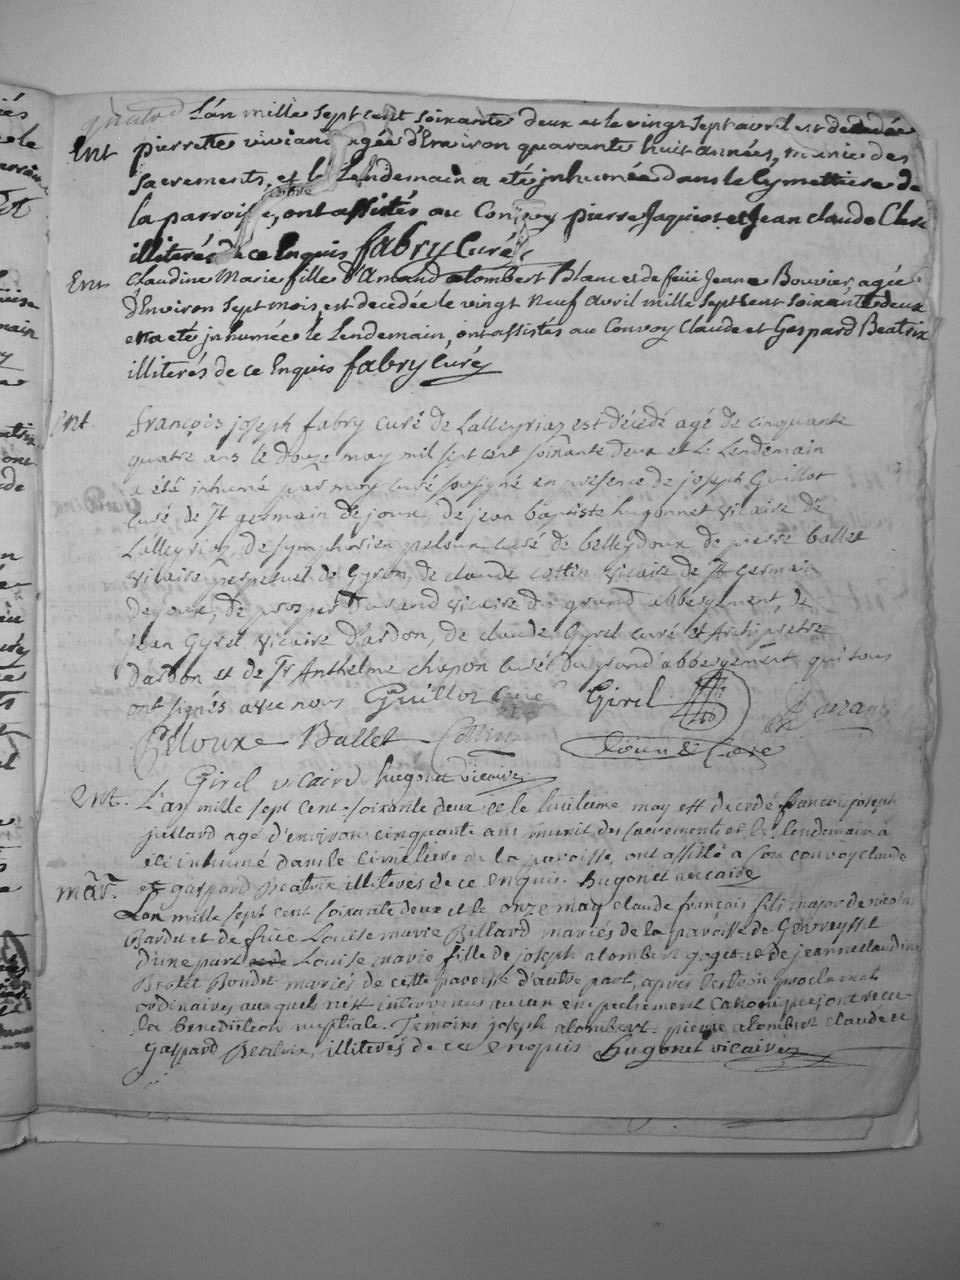 L'an mille sept cent soixante deux et le vingt sept avril est decedée
Ent pierrette viviand agée d'Environ quarante huit années, munie des
sacrements, et le Lendemain a eté jnhumée dans le Cymettiere de
la parroisse, ont assistés au Convoy pierre Jaquiot et Jean claude
illiterés de ce Enquis fabry Curé
Ent Claudine Marie fille d'Amand alombert Blanc et de feüe Jeane Bouvier, agée
d'Environ sept mois, est decedée le vingt neuf avril mille sept cent soixante deux
et a eté jnhumée le Lendemain, ont assistés au Convoy Claude et Gaspard Beatrix
illiterés de ce Enquis fabry Curé
Ent. françois joseph fabry curé de Lalleyriaz est décédé agé de cinquante
quatre ans le douze may mil sept cent soixante deux et le Lendemain
a été inhumé par moy curé sousigné en presence de joseph Guillot
curé de St germain de joux, de jean baptiste hugonnet vicaire de
Lalleyriaz, de symphorien peloux curé de belleydoux de pierre ballet
vicaire de claude cottin vicaire de St Germain
de joux, de prosper Durand vicaire du grand abbergement, de
jean Gyrel vicaire Dardon, de claude Gyrel curé et Archipretre
Dardon et de Sr Anthelme chapon curé du grand abbergement qui tous
ont signés avec nous Guillot curé Girel
Peloux Ballet Cottin
Girel vicaire hugonet vicaire
Ent. L'an mille sept cent soixante deux et le huitieme may est decedé francois joseph
juillard agé d'environ cinquante ans munit des sacrements et le lendemain à
eté inhumé dans le cimetierre de la paroisse, ont assisté a son convoy claude
et gaspard Beatrix illiterés de ce enquis. Hugonet vicaire
mar. L'an mille sept cent soixante deux et le onze may claude françois fils major de nicolas
Bardet et de feüe Louise marie Billard mariés de la paroisse de
d'une part Louise marie fille de joseph alombert goget et de jeanne claudine
Brolet Boudet mariés de cette paroisse d'autre part, apres les trois proclamat
ordinaires auxquels n'est intervenus aucun empechement canonique ont recu
la benediction nuptiale. Temoins joseph alombert, pierre alombert claude et
Gaspard Beatrix, illiterés de ce enquis Hugonet vicaire